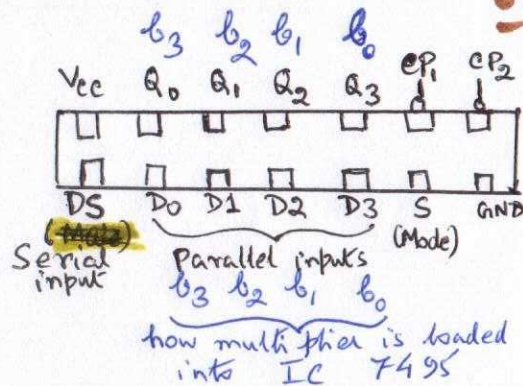 b3 b2 b1 b0
Vcc Q0 Q1 Q2 Q3 CP1 CP2
DS D0 D1 D2 D3 S GND
Serial input
parallel inputs
(Mode)
b3 b2 b1 b0
how multiplier is loaded
into IC 7495